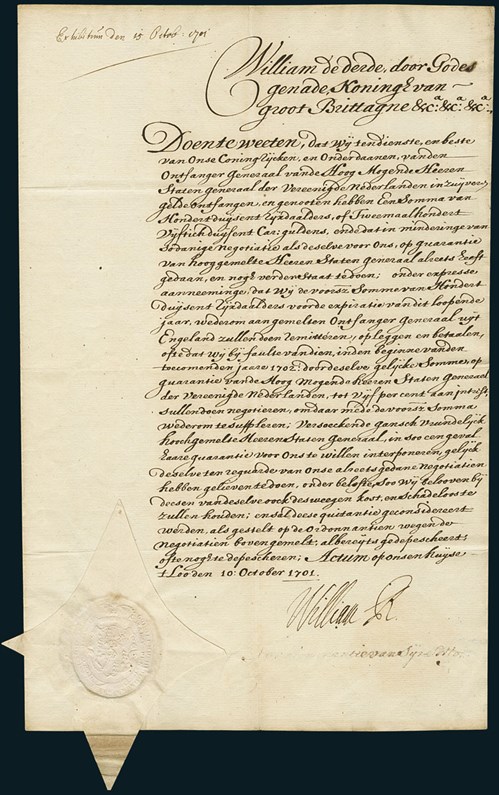 Exhibitum den 15 Octob. 1701
William de derde, door Godes
genade, Koningh van
groot Brittagne &c:a &c:a &c:a
Doen te weeten, Dat Wij ten dienste, en beste
van Onse Coningrijcken, en Onderdaanen, van den
Ontfanger Generaal van de Hoog Mogende Heeren
Staten generaal der Vereenigde Nederlanden in zuyvere
gelde ontfangen, en genooten hebben Een Somma van
Hondert duysent Rijxdaalders, of Tweemaal hondert
Vijftich duysent Car: guldens, ende dat in minderinge van
Sodanige negotiatie als deselve voor Ons, op guarantie
van hooggemelte Heeren Staten generaal alreets heeft
gedaan, en nogh verder Staat te doen; onder expresse
aanneeminge, dat Wij de voorsz. Somme van Hondert
duysent Rijxdaalders voor de expiratie van dit loopende
jaar, wederom aan gemelten Ontfanger Generaal uijt
Engeland zullen doen remitteren, opleggen en betaalen,
ofte dat wij bij faulte van dien, in den beginne van den
toecomenden jaare 1702. door deselve gelijcke Somme, op
guarantie van de Hoog Mogende heeren Staten Generael
der Vereenigde Nederlanden, tot Vijf per cent aan intrest,
sullen doen negotieren, om daar mede de voorsz. Somma
wederom te suppleren; Versoeckende gansch vrundelijck
hoochgemelte Heeren Staten Generaal, in soo een geval
Haare guarantie voor Ons te willen interponeren, gelijck
deselve ten reguarde van Onse alreets gedane Negotiatien
hebben gelieven te doen, onder belofte, Soo Wij beloven bij
deesen van deselve oock des weegen kost, en schadeloos te
zullen houden; en sal deese quitantie geconsidereert
werden, als gestelt op de Ordonnantien wegen de
negotiatien boven gemelt, albereyts gedepescheert;
ofte nogh te depescheren; Actum op onsen Huijse
t Loo den 10: October 1701.
William R.
van Sijne